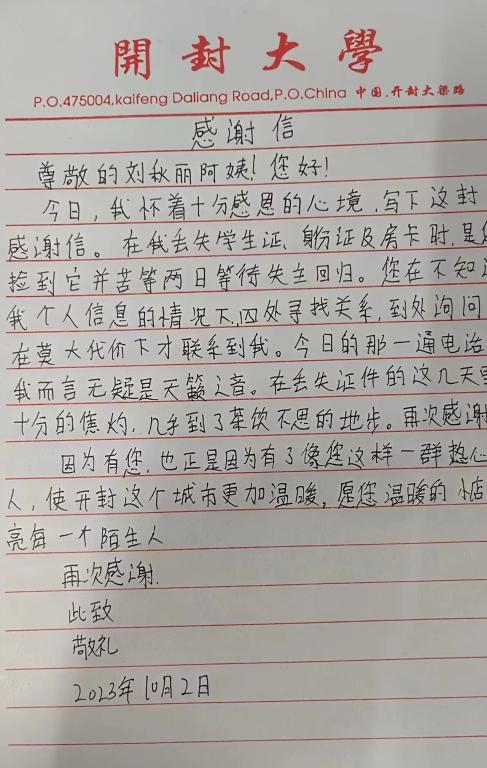 開封大學
P.O.475004,kaifeng Daliang Road,P.O.China 中国.开封大梁路
感谢信
尊敬的刘秋丽阿姨！您好！
今日，我怀着十分感恩的心境，写下这封
感谢信。在我丢失学生证、身份证及房卡时，是您
捡到它并苦等两日等待失主回归。您在不知道
我个人信息的情况下，四处寻找关系，到处询问
在莫大代价下才联系到我。今日的那一通电话
我而言无疑是天籁之音。在丢失证件的这几天里
十分的焦灼，几乎到了茶饮不思的地步。再次感谢
因为有您，也正是因为有了像您这样一群热心
人，使开封这个城市更加温暖，愿您温暖的小店
亮每一个陌生人
再次感谢.
此致
敬礼
2023年10月2日